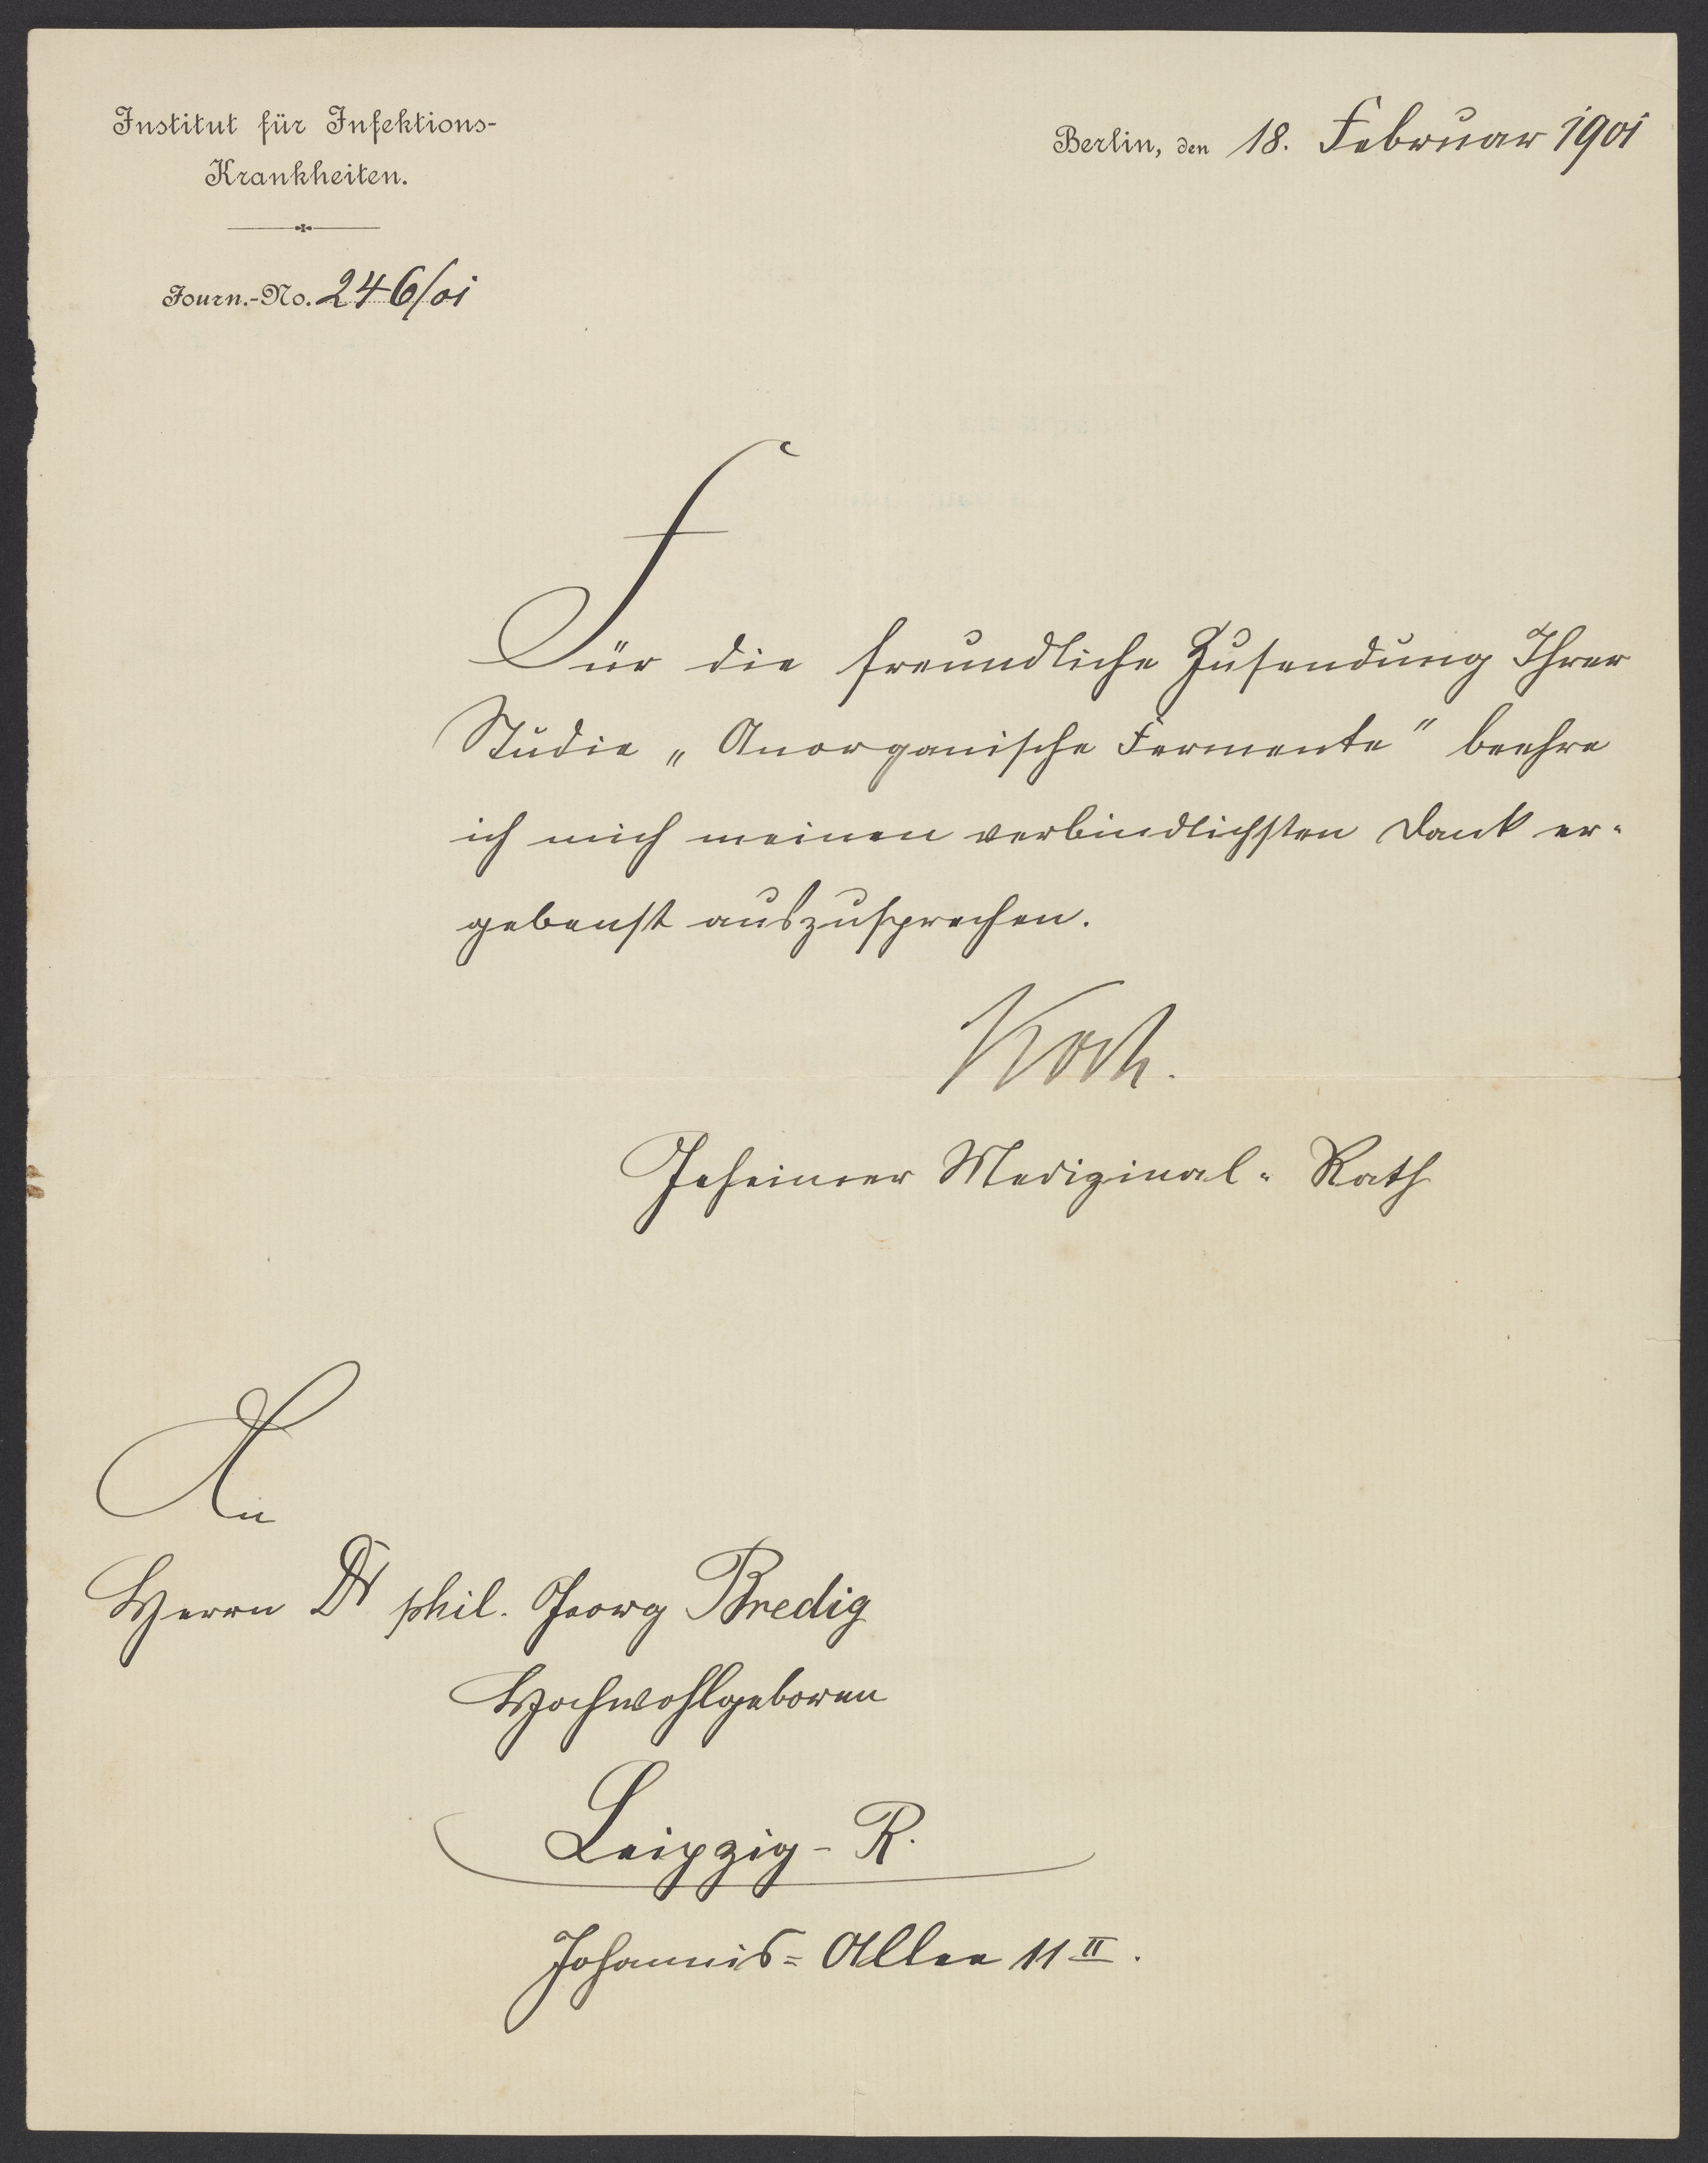 Institut für Infektions-
Krankheiten.
Journ.-No. 246/01
Berlin, den 18. Februar 1901
Für die freundliche Zusendung Ihrer
Studie „Anorganische Fermente" beehre
ich mich meinen verbindlichsten Dank er-
gebenst auszusprechen.
Koch.
Geheimer Medizinal-Rath
An
Herrn Dr phil. Georg Bredig
Hochwohlgeboren
Leipzig-R.
Johannis-Allee 11 II.